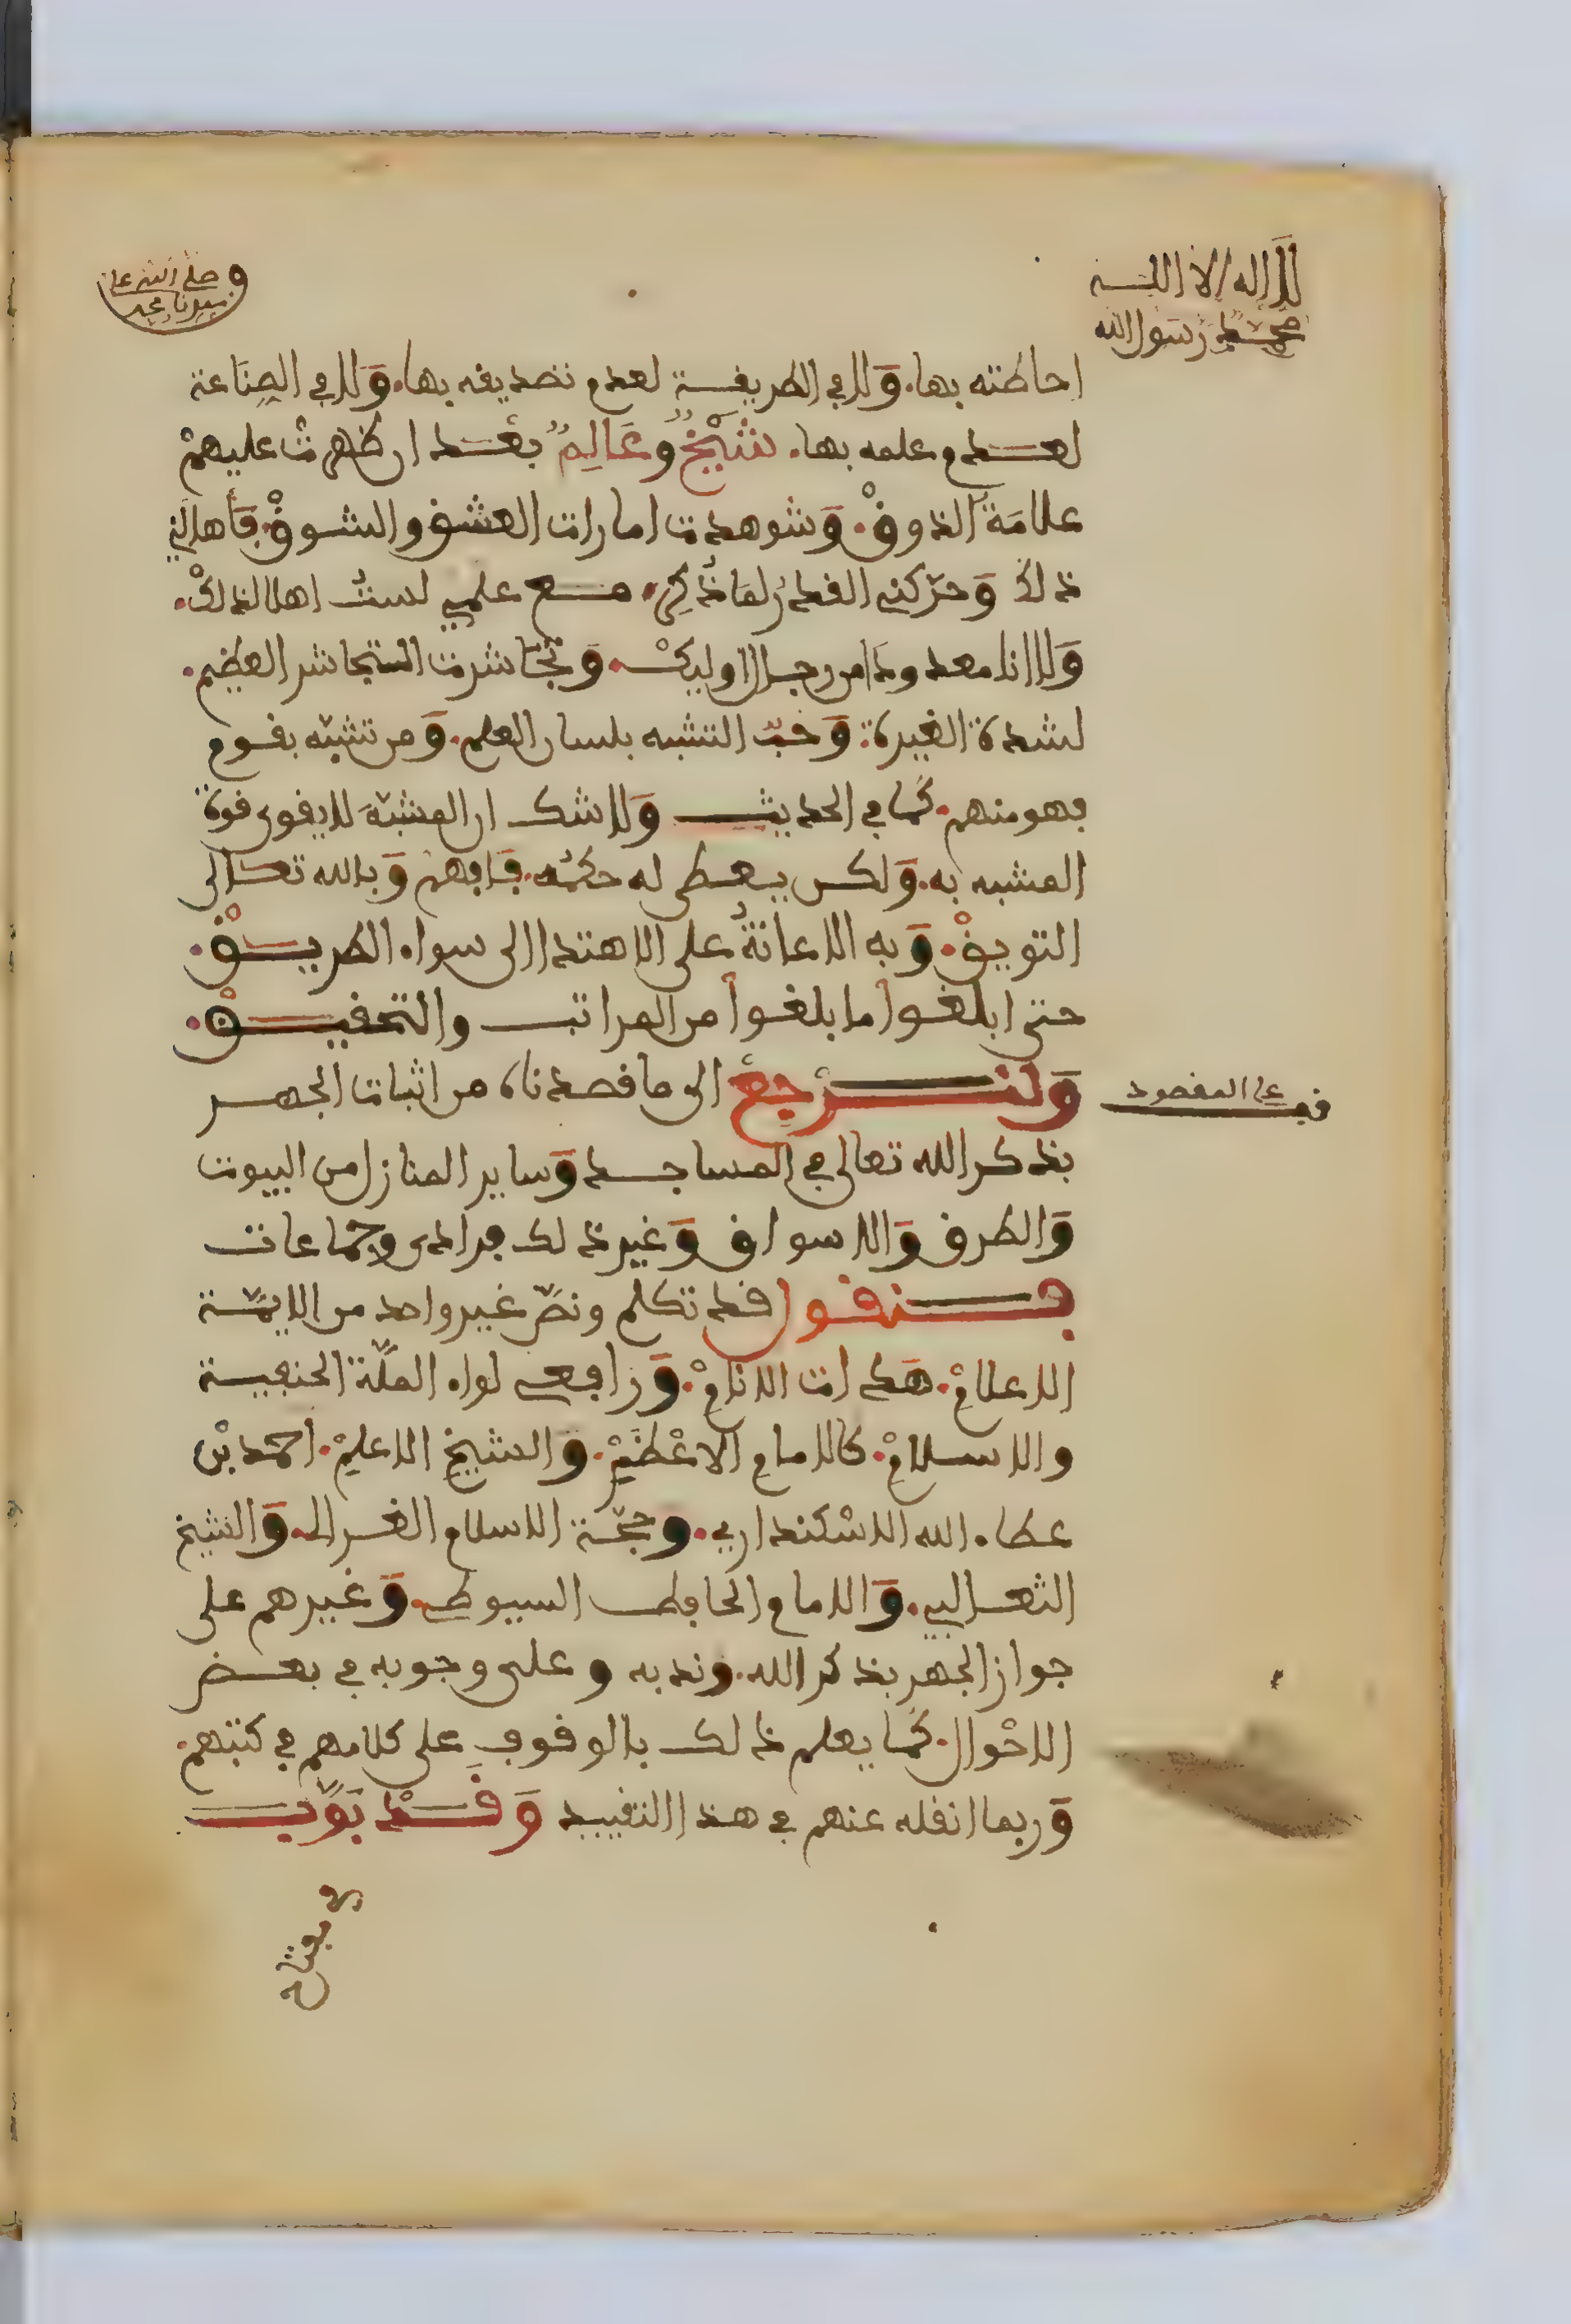 لا اله الا الله
محمد رسول الله
وصلى الله على
سيدنا محمد
احاطته بها. وَلا في الطريقة لعدم تصديقه بها. وَلا في الصِنَاعة
لعدم علمه بها. شَيْخٌ وعَالِمٌ بعْد ان ظهرتْ عليهمْ
علامَةُ الذوقْ. وَشوهدت امارات العشق والشوقْ.
ذلك وَحرّكني القدرُ لمَا ذُكِر. مع علمي لستُ اهلا لذلكْ.
وَلا انا معدودا من رجال اوليكْ. وَتجَاسرت التجاسر العظيم.
لشدة الغيرة. وَحبّ التشبه بلسان العلم. وَمن تشبّه بقوم
فهو منهم. كما في الحديث وَلا شك ان المشبّهَ لا يقوى قوة
المشبه به. وَلكن يعطى له حكمُه. فَافهمْ وَبالله تعالى
التوفيقْ. وَبه الاعانةُ على الاهتدا الى سواء الطريقْ.
حتى ابلغوا ما بلغوا من المراتب والتحقيقْ.
وَلنرْجِعْ الى ما قصدناه من اثبات الجهر
على المقصود
بذكر الله تعالى في المساجد وَساير المنازل من البيوت
وَالطرق وَالاسواق وَغير ذلك فرادى وجماعات
فنقول قد تكلم ونصّ غير واحد من الايمّة
الاعلامْ. هدات الانامْ. وَرافعي لواء الملّة الحنيفية
والاسلامْ. كالامام الاعْظَمْ. وَالشيخ الاعلمْ. احمد بْن
عطاء الله الاسْكنداري. وحجّة الاسلام الغزالي. وَالشيخ
الثعالبي. وَالامام الحافظ السيوطي. وَغيرهم على
جواز الجهر بذكر الله. وندبه وعلى وجوبه في بعض
الاحْوال. كما يعلم ذلك بالوقوف على كلامهم في كتبهم.
وَربما انقله عنهم في هذا التقييد وَقدْ بَوَّبَ